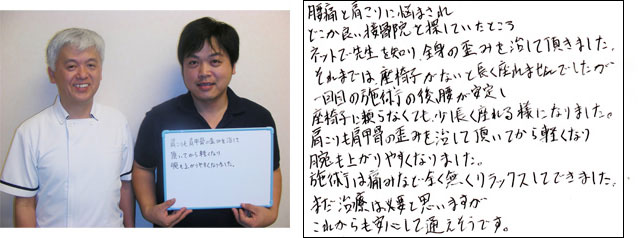 肩こりも肩甲骨の歪みを治して
頂いてから軽くなり
腕も上がりやすくなりました。
腰痛と肩こりに悩まされ
どこか良い接骨院と探していたところ
ネットで先生を知り、全身の歪みを治して頂きました。
それまでは座椅子がないと長く座れませんでしたが
一回目の施術の後、腰が安定し
座椅子に頼らなくても少し長く座れる様になりました。
肩こりも肩甲骨の歪みを治して頂いてから軽くなり
腕も上がりやすくなりました。
施術は痛みなど全く無くリラックスしてできました。
まだ治療は必要と思いますが
これからも安心して通えそうです。